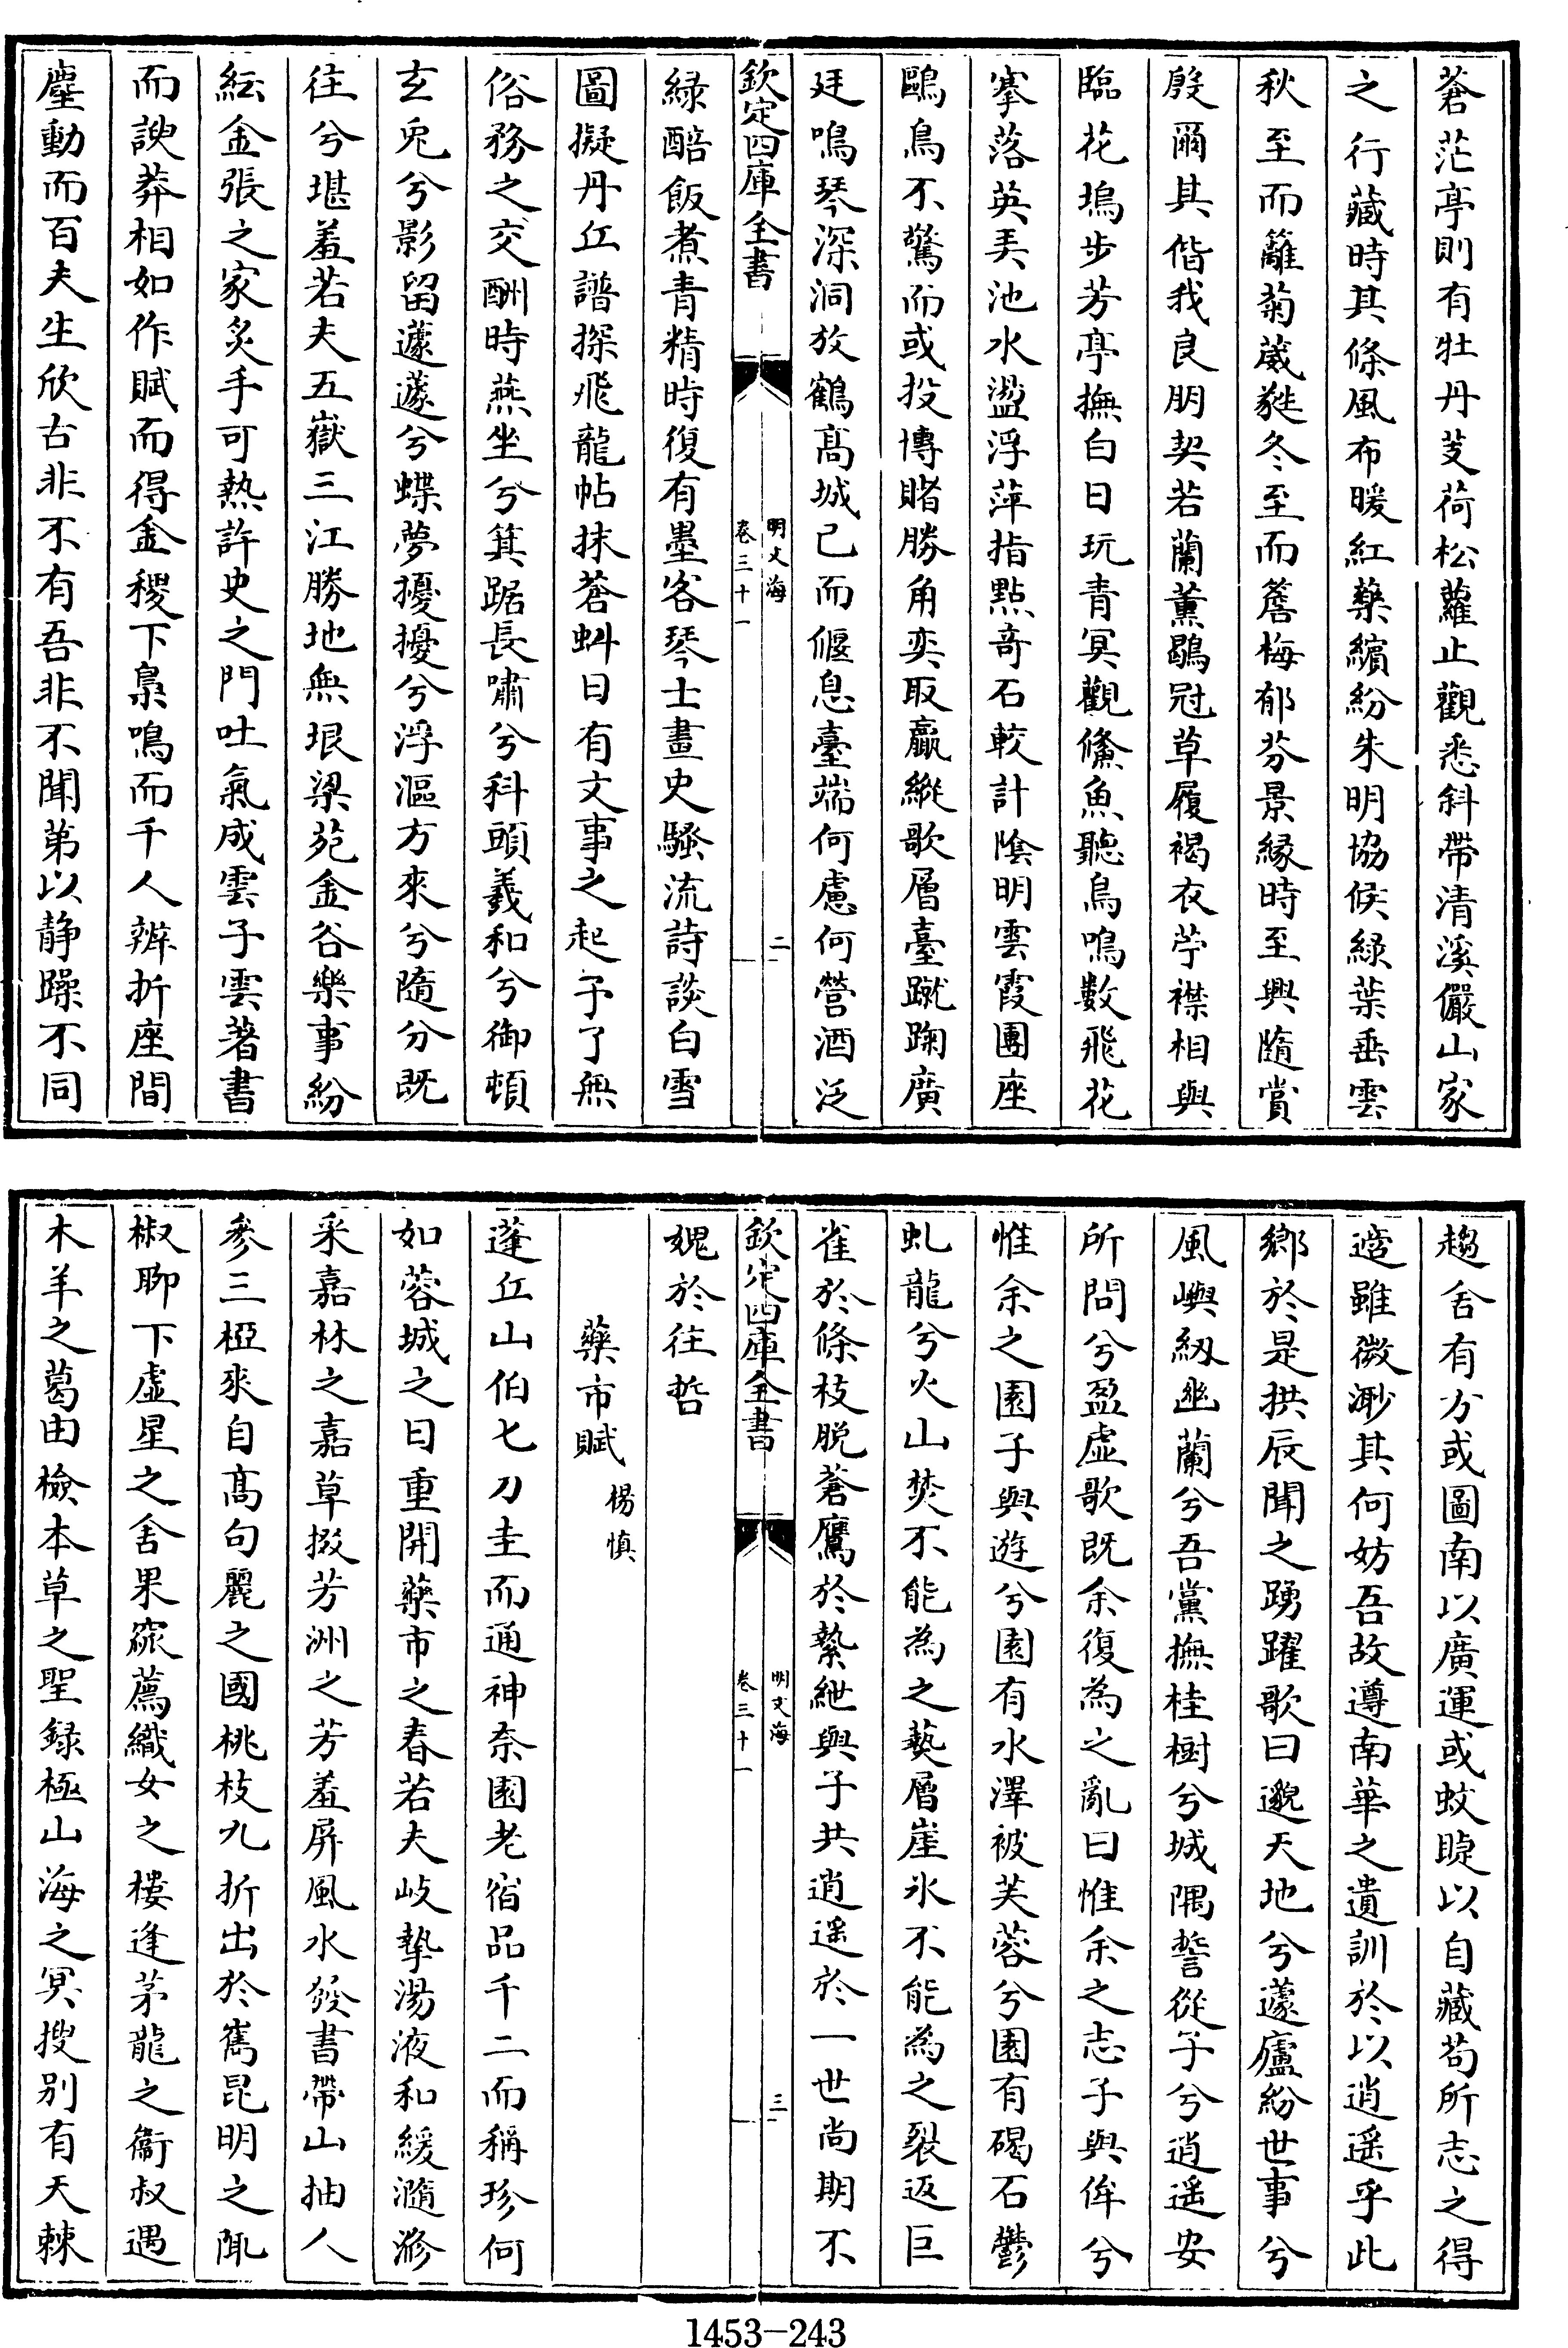 蒼茫亭則有牡丹芰荷松蘿止觀悉斜帶清溪儼山家
之行藏時其條風布暖紅藥繽紛朱明協候綠葉垂雲
秋至而籬菊葳蕤冬至而簷梅郁芬景緣時至興隨賞
殷爾其偕我良朋契若蘭薰鶡冠草履褐衣苧襟相與
臨花塢步芳亭撫白日玩青冥觀鯈魚聽鳥鳴數飛花
搴落英弄池水盪浮萍指點奇石較計陰明雲霞團座
鷗鳥不驚而或投博賭勝角奕取贏縱歌層臺蹴踘廣
廷鳴琴深洞放鶴高城已而偃息臺端何慮何營酒泛
欽定四庫全書
明文海
卷三十一
二
綠醅飯煮青精時復有墨客琴士畫史騷流詩談白雪
圖擬丹丘譜探飛龍帖抹蒼蚪日有文事之起予了無
俗務之交酬時燕坐兮箕踞長嘯兮科頭羲和兮御頓
玄兎兮影留蘧蘧兮蝶夢擾擾兮浮漚方來兮隨分既
往兮堪羞若夫五嶽三江勝地無垠梁苑金谷樂事紛
紜金張之家炙手可熱許史之門吐氣成雲子雲著書
而諛莽相如作賦而得金稷下梟鳴而千人辨折座間
麈動而百夫生欣古非不有吾非不聞弟以静躁不同
趨舍有方或圖南以廣運或蚊睫以自藏苟所志之得
適雖微渺其何妨吾故遵南華之遺訓於以逍遥乎此
鄉於是拱辰聞之踴躍歌曰邈天地兮蘧廬紛世事兮
風嶼紉幽蘭兮吾黨撫桂樹兮城隅誓從子兮逍遥安
所問兮盈虛歌既余復為之亂曰惟余之志子與侔兮
惟余之園子與遊兮園有水澤被芙蓉兮園有碣石鬱
虬龍兮火山焚不能為之藝層崖氷不能為之裂返巨
雀於條枝脱蒼鷹於縶紲與子共逍遥於一世尚期不
欽定四庫全書
明文海
卷三十一
三
媿於往哲
藥市賦 楊慎
蓬丘山伯七刀圭而通神柰園老宿品千二而稱珍何
如蓉城之日重開藥市之春若夫岐摯湯液和緩瀡滫
采嘉林之嘉草掇芳洲之芳羞屏風水發書帶山抽人
參三椏來自高句麗之國桃枝九折出於雋昆明之陬
椒聊下虛星之舍果窳薦織女之樓逢茅龍之衞叔遇
木羊之葛由檢本草之聖録極山海之冥搜别有天棘
1453-243